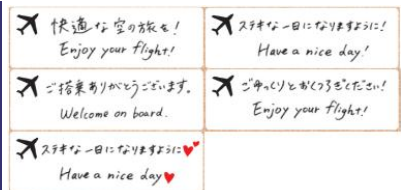 快適な空の旅を!
Enjoy your flight!
ステキな一日になりますように!
Have a nice day!
ご搭乗ありがとうございます。
Welcome on board.
ごゆっくりとおくつろぎください!
Enjoy your flight!
ステキな一日になりますように
Have a nice day